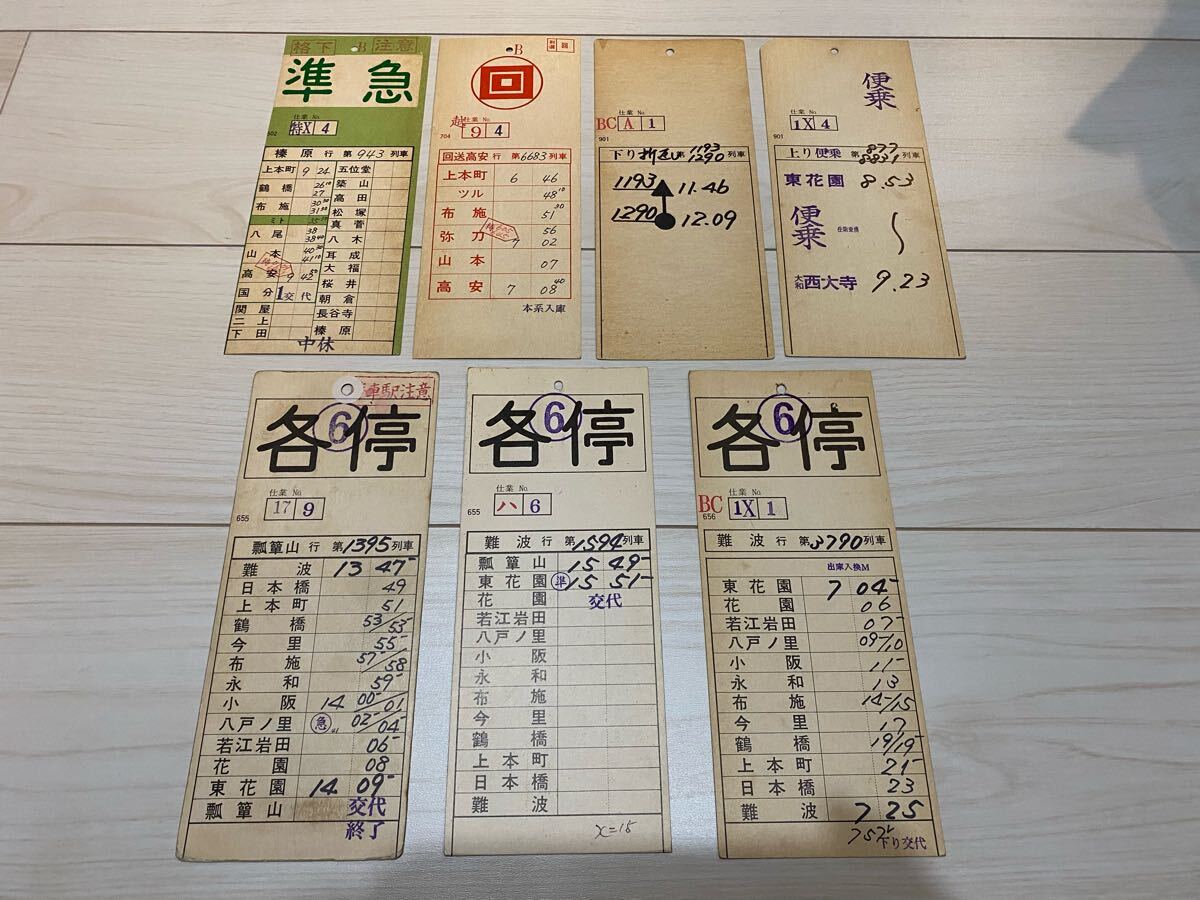 格下 B 注意
準急
仕業 No
502 特X 4
榛原 行 第 943 列車
上本町 9 24 五位堂
鶴橋 26 10 27 築山
高田
布施 30 31 松塚
ミト 35 真菅
八尾 38 38 40 八木
山本 40 41 10 耳成
大福
高安 9 42 50 桜井
国分 1交代 朝倉
関屋 長谷寺
二上
下田 榛原
中休
B
回
仕業 No
704 9 4
回送高安 行 第6683列車
上本町 6 46
ツル 48 10
布施 51 30
弥刀 56
7 02
山本 07
高安 7 08 40
本系入庫
仕業 No
BC A 1
901
下り 折返し 第 1193 1290 列車
1193 11.46
1290 12.09
便乗
仕業 No
1X 4
901
上り 便乗 第 877 8831 列車
東花園 8.53
便乗
大和西大寺 9.23
車駅注意
各停
6
仕業 No
655 17 9
瓢簞山 行 第1395列車
難波 13 47
日本橋 49
上本町 51
鶴橋 53/53
今里 55
布施 57/58
永和 59
小阪 14 00/01
八戸ノ里 急 02/04
若江岩田 06
花園 08
東花園 14 09
瓢簞山 交代
終了
各停
6
仕業 No
655 ハ 6
難波 行 第1594列車
瓢簞山 15 49
東花園 準 15 51
花園 交代
若江岩田
八戸ノ里
小阪
永和
布施
今里
鶴橋
上本町
日本橋
難波
x=15
各停
6
仕業 No
BC 1X 1
656
難波 行 第3790列車
出庫入換M
東花園 7 04
花園 06
若江岩田 07
八戸ノ里 09/10
小阪 11
永和 13
布施 14/15
今里 17
鶴橋 19/19
上本町 21
日本橋 23
難波 7 25
下り交代